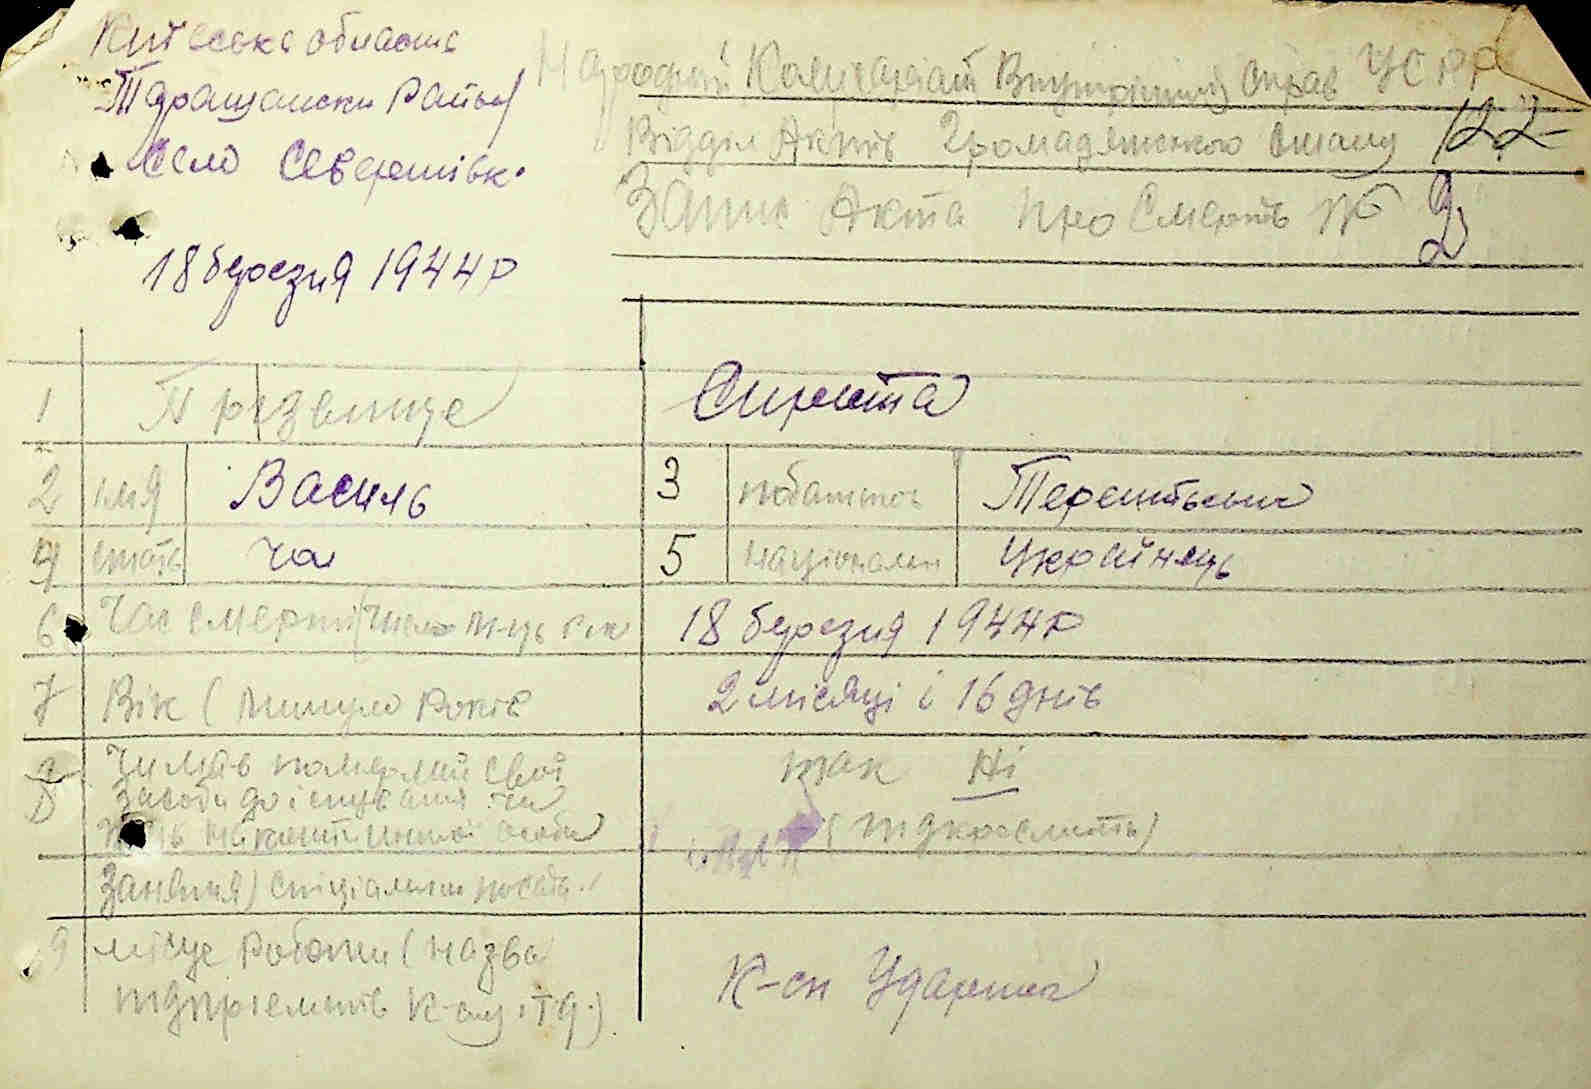 Київська область
Таращански Район
Село Северинівк.
18 березня 1944 р
Народний Комісаріат Внутрішніх Справ УСРР
Відділ Актів Громадянського Стану 122
Запис Акта про Смерть № 2
1 Прізвище Сирота
2 імя Василь 3 побатьков Терентьевич
4 стать чол 5 національн Українець
6 Час смерті (число м-ць рік 18 березня 1944 р
7 Вік (минуло років 2 місяці і 16 днів
8 Чи мав померлий свої так Ні
засоби до існування чи
на кошти иншої особи (підкреслить)
Заняття) спеціальн посада
9 місце роботи (назва
підприємств к-спу і т д.) К-сп Ударник